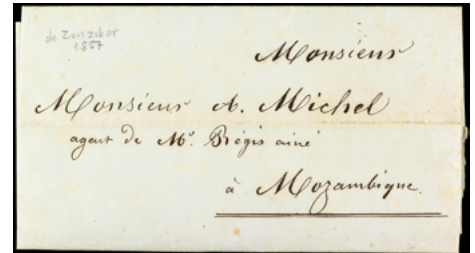 de Zanzibar
1857
Monsieur
Monsieur A. Michel
agent de Mr. Régis ainé
à Mozambique.